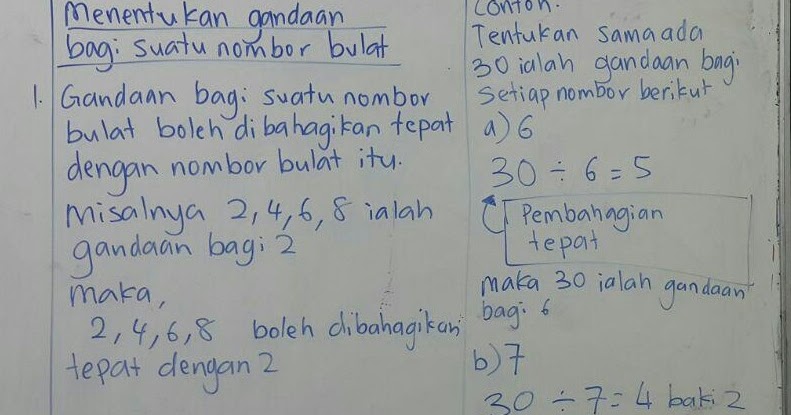 Menentukan gandaan
bagi suatu nombor bulat
1. Gandaan bagi suatu nombor
bulat boleh dibahagikan tepat
dengan nombor bulat itu.
Misalnya 2, 4, 6, 8 ialah
gandaan bagi 2
maka,
2, 4, 6, 8 boleh dibahagikan
tepat dengan 2
Contoh:
Tentukan sama ada
30 ialah gandaan bagi
setiap nombor berikut
a) 6
30 ÷ 6 = 5
Pembahagian
tepat
maka 30 ialah gandaan
bagi 6
b) 7
30 ÷ 7 = 4 baki 2